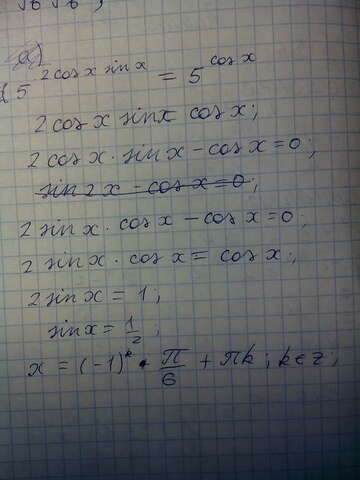 a)
5^{2cos x sin x} = 5^{cos x}
2cos x sin x cos x;
2 cos x · sin x - cos x = 0;
sin 2x - cos x = 0;
2 sin x · cos x - cos x = 0;
2 sin x · cos x = cos x;
2 sin x = 1;
sin x = 1/2;
x = (-1)^k · π/6 + πk; k∈z;